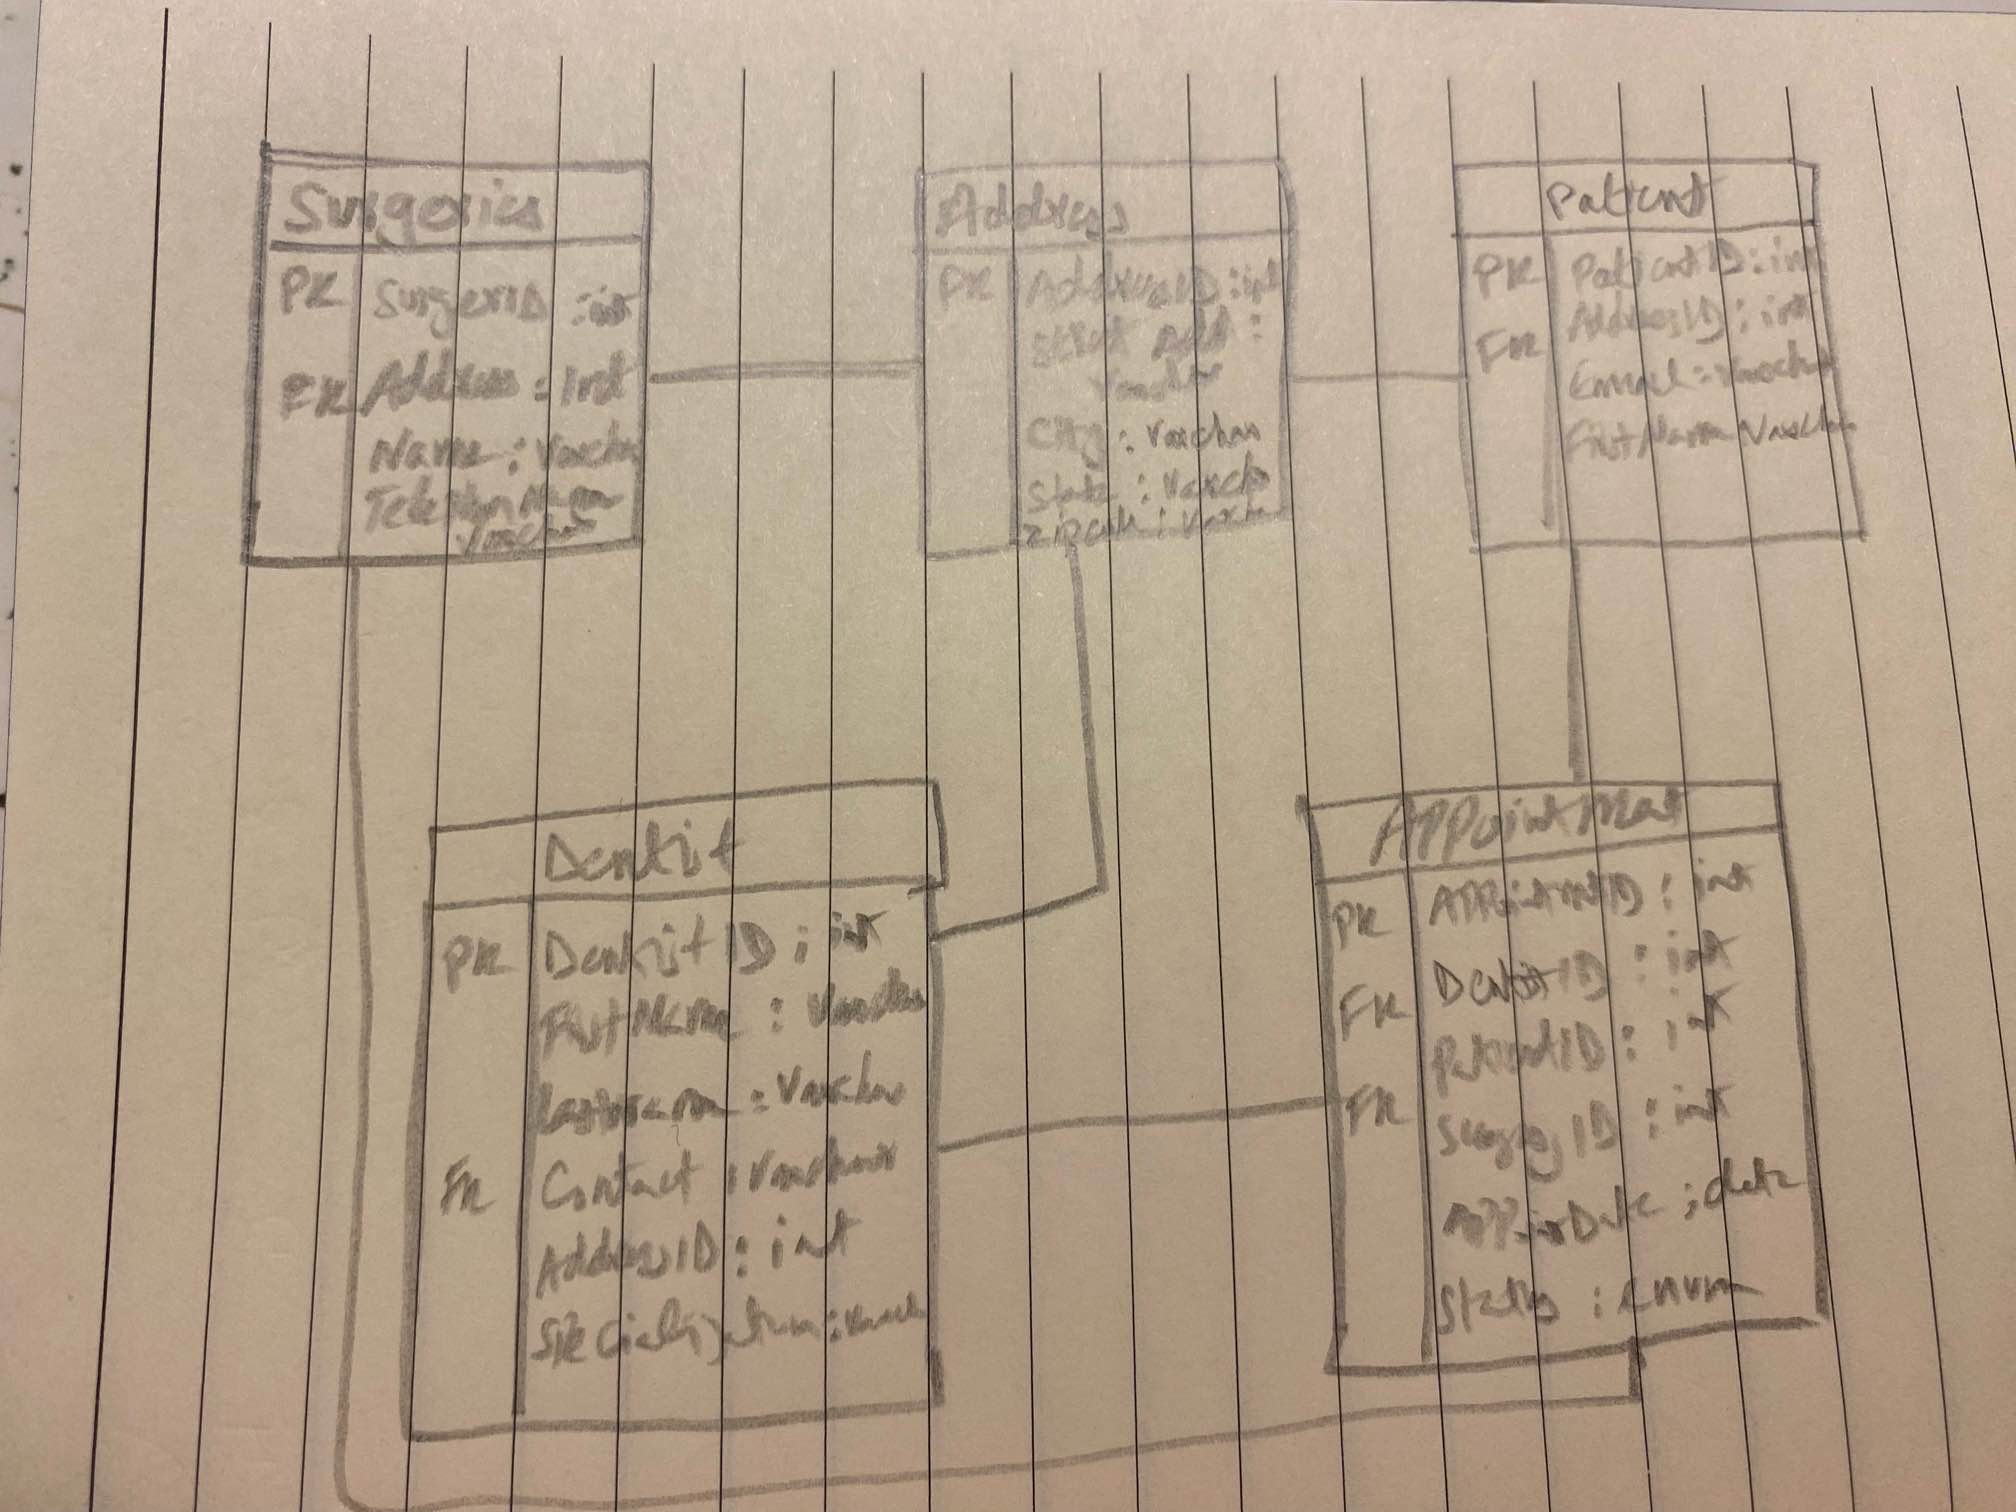 Surgeries
PK SurgerID : int
FK Address : int
Name : Varchar
Varchar
Address
PK AddressID : int
Street Add :
Varchar
City : Varchar
State : Varcha
Zipcode : Varcha
Patient
PK PatientID : int
FK AddressID : int
Email : Varchar
FirstName Varchar
Dentist
PK DentistID : int
FirstName : Varchar
Lastname : Varchar
FK Contact : Varchar
AddressID : int
Specialization : Varch
PK : int
FK DentistID : int
PatientID : int
FK SurgeyID : int
: date
Status : enum